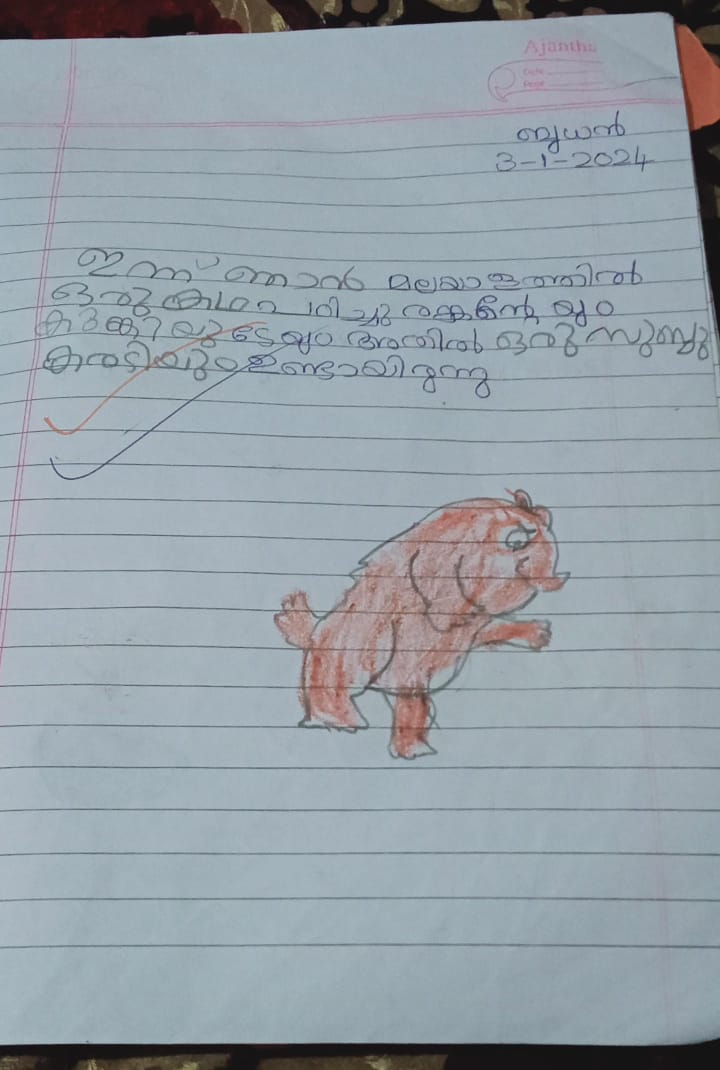 Ajantha
Date
Page
ബുധൻ
3-1-2024
ഇന്ന് ഞാൻ മലയാളത്തിൽ
ഒരു കഥ പഠിച്ചു രങ്കൻ്റേയും
കുറുക്കിയുടേയും അതിൽ ഒരു സുബ്ബു
കരടിയും ഉണ്ടായിരുന്നു